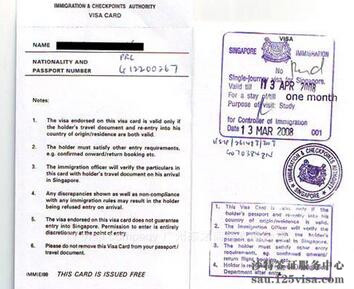 IMMIGRATION & CHECKPOINTS AUTHORITY
VISA CARD
NAME
NATIONALITY AND
PASSPORT NUMBER
PRC
G12200267
Notes:
1. The visa endorsed on this visa card is valid only if
the holder's travel document and re-entry into his
country of origin/residence are both valid.
2. The holder must satisfy other entry requirements,
e.g. confirmed onward/return booking etc.
3. The immigration officer will verify the particulars in
this card with travel document on his arrival in
Singapore.
4. Any discrepancies shown as well as non-compliance
with any immigration rules may result in the holder
being refused entry on arrival.
5. The visa endorsed on this card does not guarantee
entry into Singapore. Permission to enter is entirely
discretionary at the point of entry.
6. Please do not remove this Visa Card from your passport/
travel document.
IMM/E/89 THIS CARD IS ISSUED FREE
VISA
SINGAPORE IMMIGRATION
Single-journey visa for Singapore.
Valid till 13 APR 2008
For a stay of/till one month
Purpose of visit: Study
for Controller of Immigration
Date 13 MAR 2008 001
IMMIGRATION & CHECKPOINTS AUTHORITY
SINGAPORE
1. This Visa Card is valid only if the
holder's passport and re-entry into his
country of origin/residence are valid.
2. The Immigration Officer will verify the
above particulars with the holder's
passport on his arrival in Singapore.
3. The holder must satisfy other entry
requirements, eg confirmed onward/
return flight booking.
4. Holder is required to
Department after entry.
sau.125visa.com